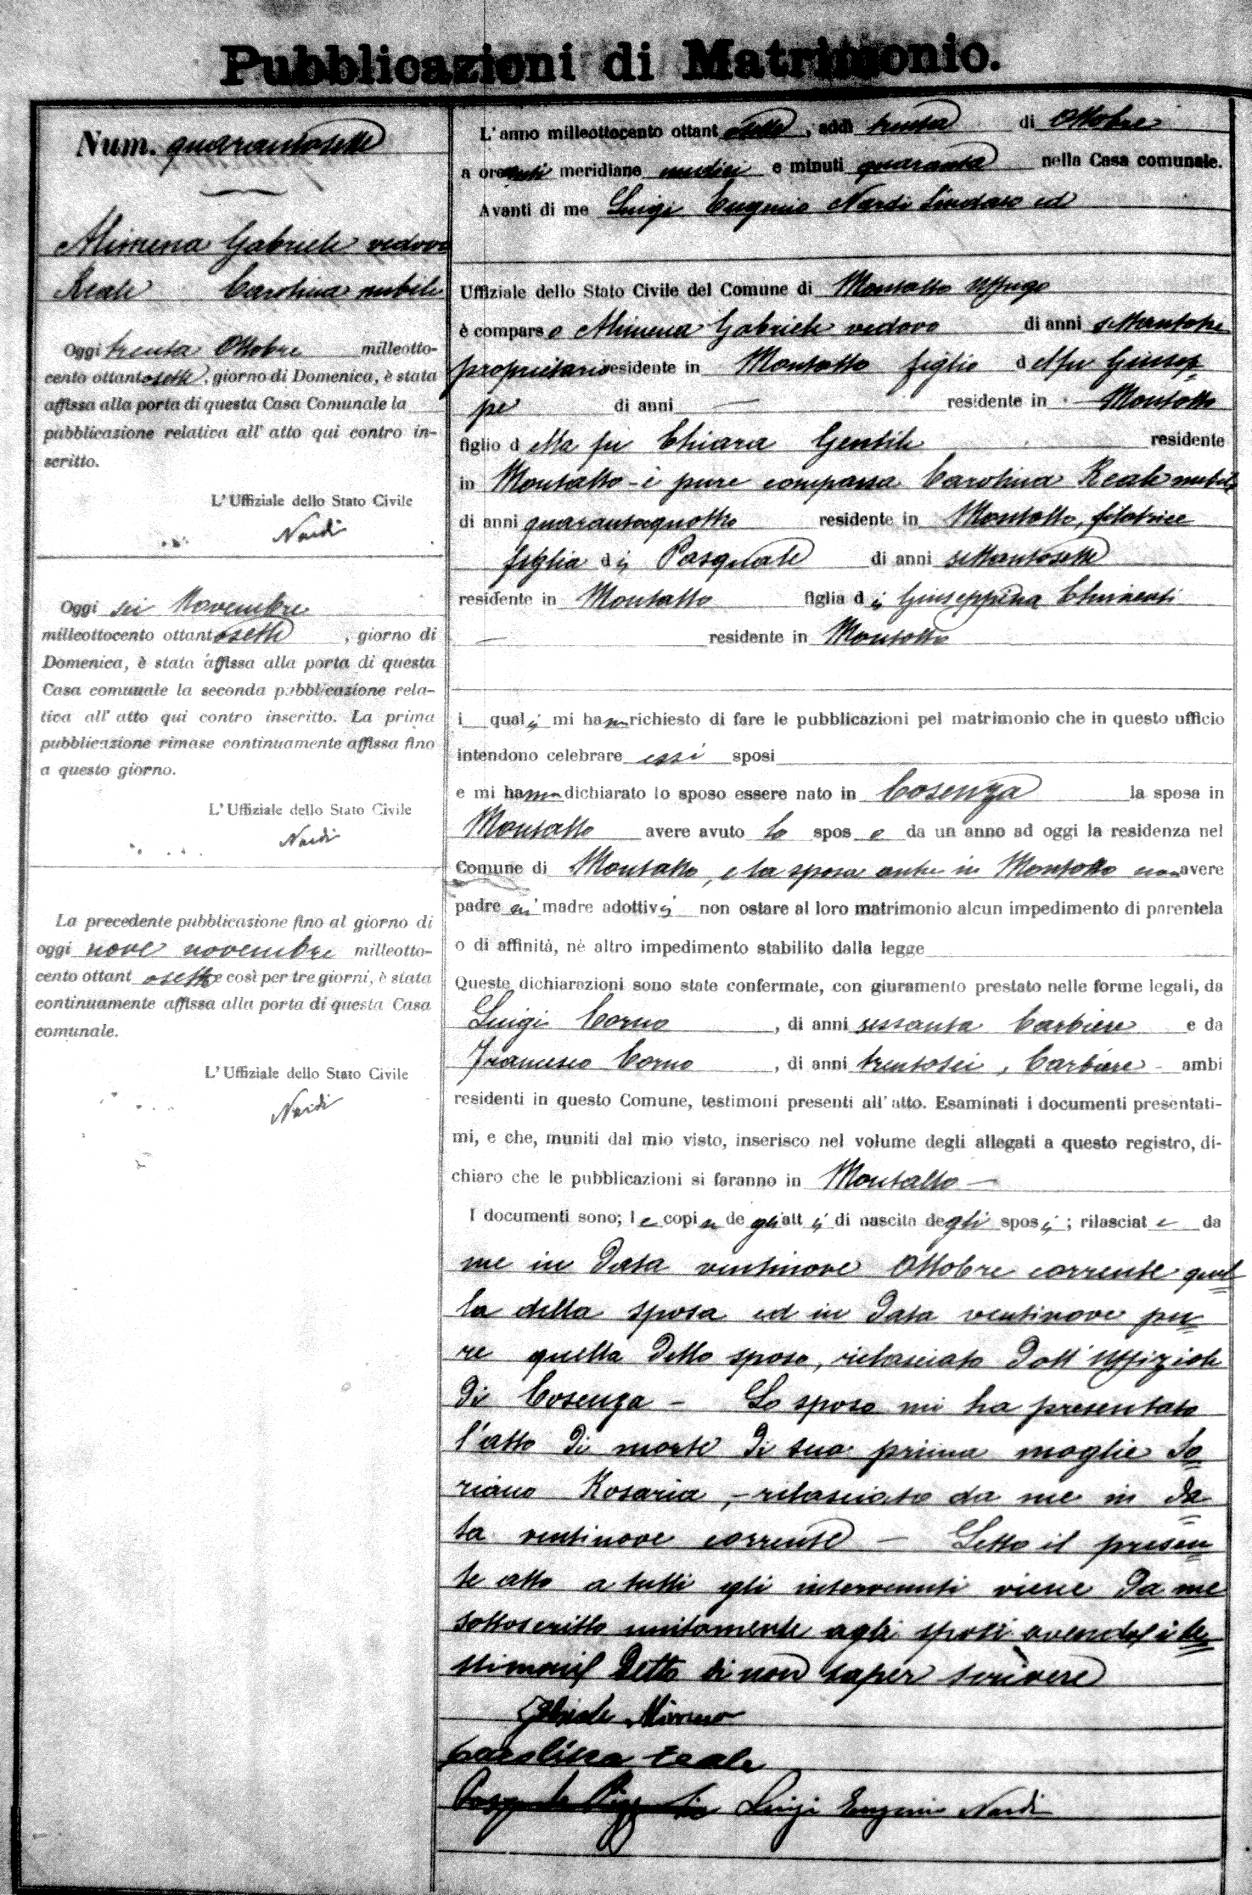 Pubblicazioni di Matrimonio.
Num. quarantosette
Alimena Gabriele vedovo
Reale Carolina nubile
Oggi trenta Ottobre milleotto-
cento ottantosette, giorno di Domenica, è stata
affissa alla porta di questa Casa Comunale la
pubblicazione relativa all' atto qui contro in-
scritto.
L' Uffiziale dello Stato Civile
Nardi
Oggi sei Novembre
milleottocento ottantosette, giorno di
Domenica, è stata affissa alla porta di questa
Casa comunale la seconda pubblicazione rela-
tiva all' atto qui contro inscritto. La prima
pubblicazione rimase continuamente affissa fino
a questo giorno.
L' Uffiziale dello Stato Civile
Nardi
La precedente pubblicazione fino al giorno di
oggi nove novembre milleotto-
cento ottantosette e così per tre giorni, è stata
continuamente affissa alla porta di questa Casa
comunale.
L' Uffiziale dello Stato Civile
Nardi
L' anno milleottocento ottantosette, addì trenta di Ottobre
a ore anti meridiane undici e minuti quaranta nella Casa comunale.
Avanti di me Luigi Eugenio Nardi Sindaco ed
Uffiziale dello Stato Civile del Comune di Montalto Uffugo
è comparso Alimena Gabriele vedovo di anni settantatre
proprietario residente in Montalto figlio del fu Giusep-
pe di anni — residente in — Montalto
figlio della fu Chiara Gentile residente
in Montalto - è pure comparsa Carolina Reale nubile
di anni quarantaquattro residente in Montalto, filatrice
figlia di Pasquale di anni settantasette
residente in Montalto figlia di Giuseppina Chimenti
— residente in Montalto
i quali mi hanno richiesto di fare le pubblicazioni pel matrimonio che in questo ufficio
intendono celebrare essi sposi
e mi hanno dichiarato lo sposo essere nato in Cosenza la sposa in
Montalto avere avuto lo sposo da un anno ad oggi la residenza nel
Comune di Montalto, e la sposa anche in Montalto non avere
padre nè madre adottivi non ostare al loro matrimonio alcun impedimento di parentela
o di affinità, nè altro impedimento stabilito dalla legge
Queste dichiarazioni sono state confermate, con giuramento prestato nelle forme legali, da
Luigi Corno, di anni sessanta barbiere e da
Francesco Corno, di anni trentasei, barbiere - ambi
residenti in questo Comune, testimoni presenti all' atto. Esaminati i documenti presentati-
mi, e che, muniti dal mio visto, inserisco nel volume degli allegati a questo registro, di-
chiaro che le pubblicazioni si faranno in Montalto —
I documenti sono; le copie degli atti di nascita degli sposi; rilasciate da
me in data ventinove Ottobre corrente quel-
la della sposa ed in data ventinove pu-
re quella dello sposo, rilasciato dall' Uffiziale
di Cosenza - Lo sposo mi ha presentato
l' atto di morte di sua prima moglie So-
riano Rosaria, - rilasciato da me in da-
ta ventinove corrente - Letto il presen-
te atto a tutti gli intervenuti viene da me
sottoscritto unitamente agli sposi avendo i te-
stimoni detto di non saper scrivere
Gabriele Alimena
Carolina reale
Luigi Eugenio Nardi